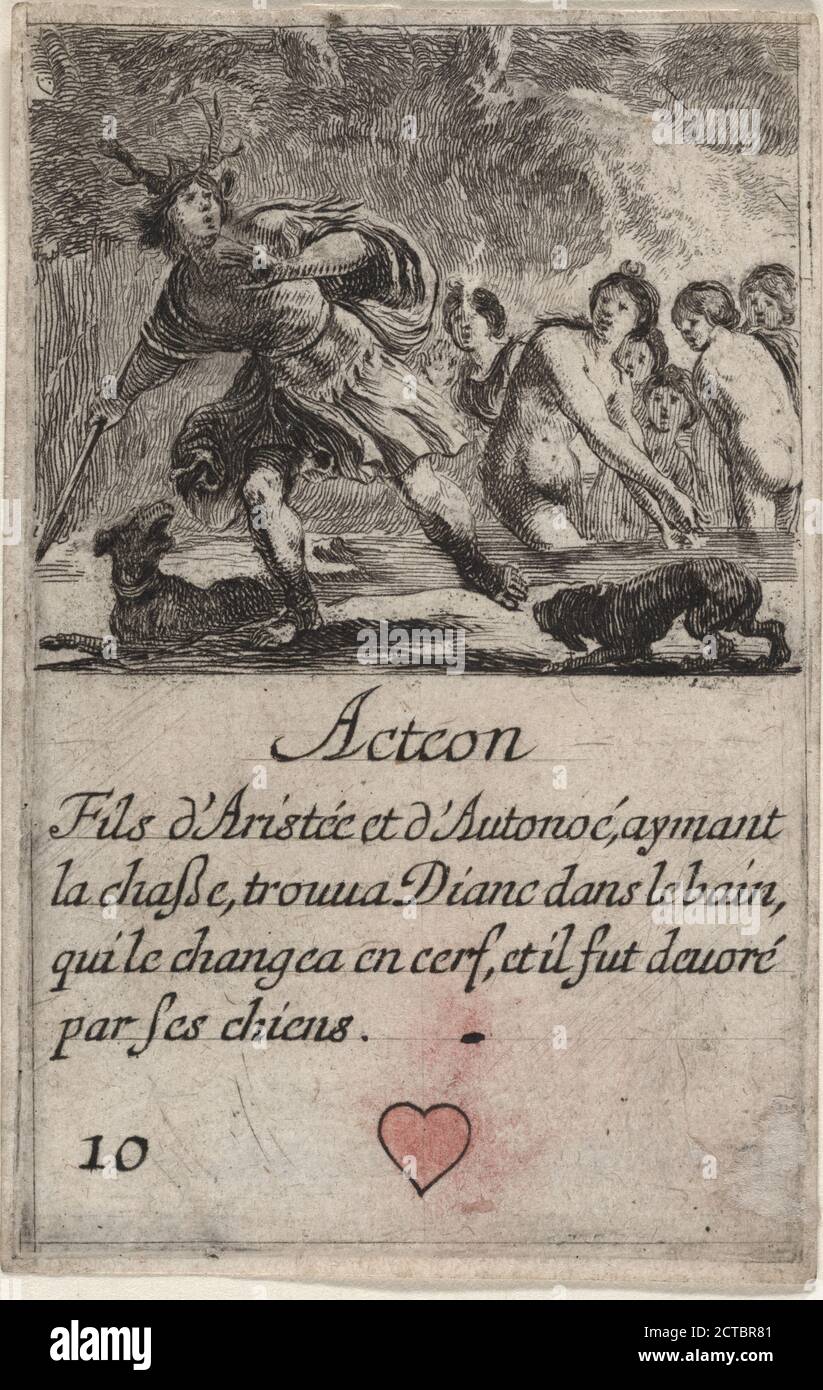 Acteon
Fils d'Aristée et d'Autonoé, aymant
la chaſße, trouua Diane dans le bain,
qui le changea en cerf, et il fut deuoré
par ſes chiens.
10
alamy
alamy
Image ID: 2CTBR81
www.alamy.com